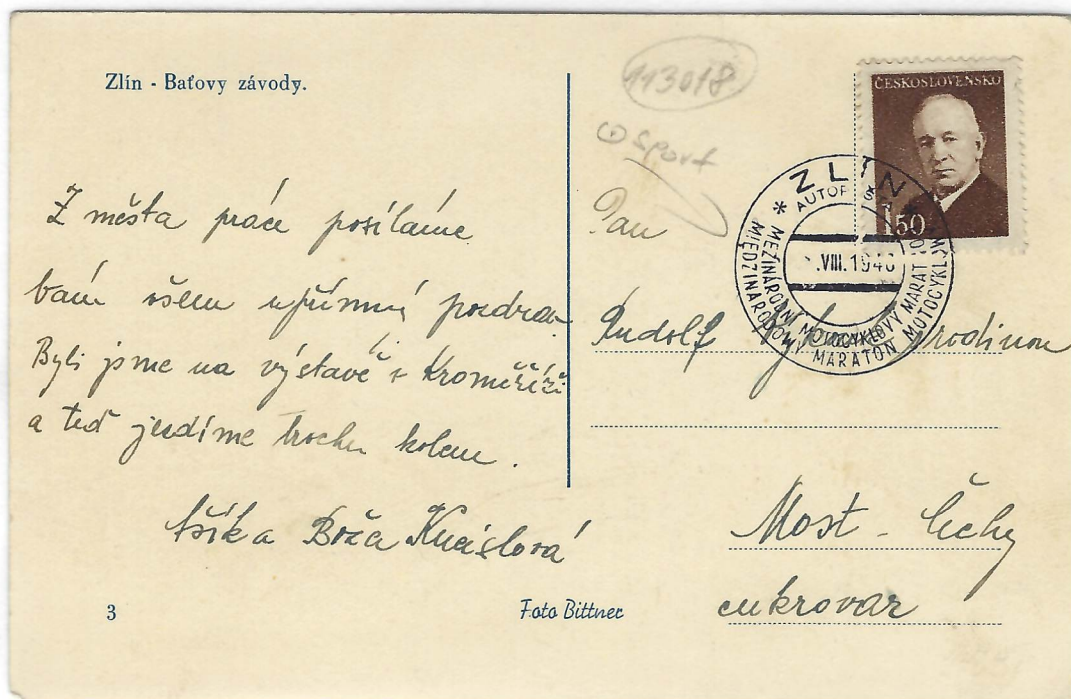 Zlín - Baťovy závody.
Z města práce posíláme
vám všem upřímný pozdrav
Byli jsme na výstavě v Kroměříži
a teď jezdíme trochu kolem.
Boža
3
Foto Bittner
113018
sport
ČESKOSLOVENSKO
1.50
* ZLÍN
AUTOP
.VIII.194
MEZINÁRODNÍ MOTOCYKLOVÝ MARAT
MIĘDZINARODOWY MARATON MOTOCYKLOWY
Pan
Rudolf rodinou
Most - Čechy
cukrovar